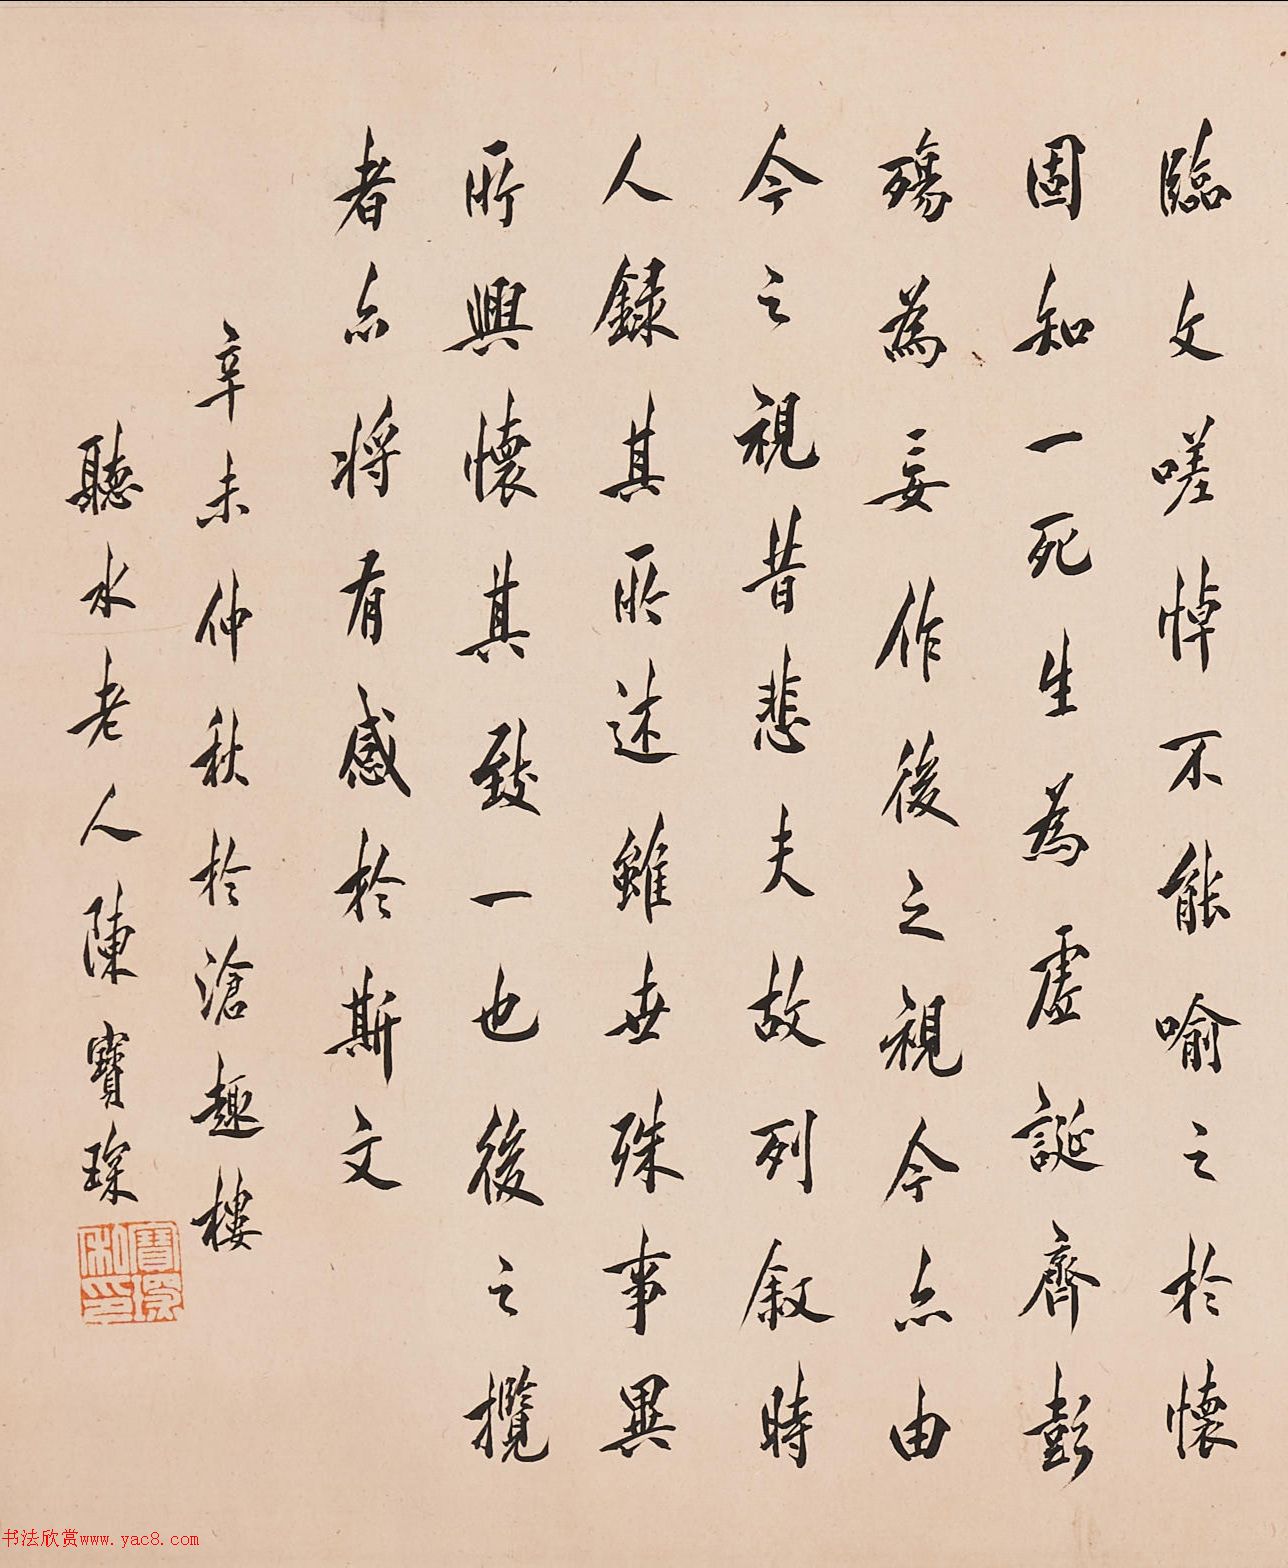 臨文嗟悼不能喻之於懷
固知一死生為虛誕齊彭
殤為妄作後之視今亦由
今之視昔悲夫故列敘時
人錄其所述雖世殊事異
所興懷其致一也後之攬
者亦將有感於斯文
辛未仲秋於滄趣樓
聽水老人陳寶琛
寶琛私印
书法欣赏www.yac8.com